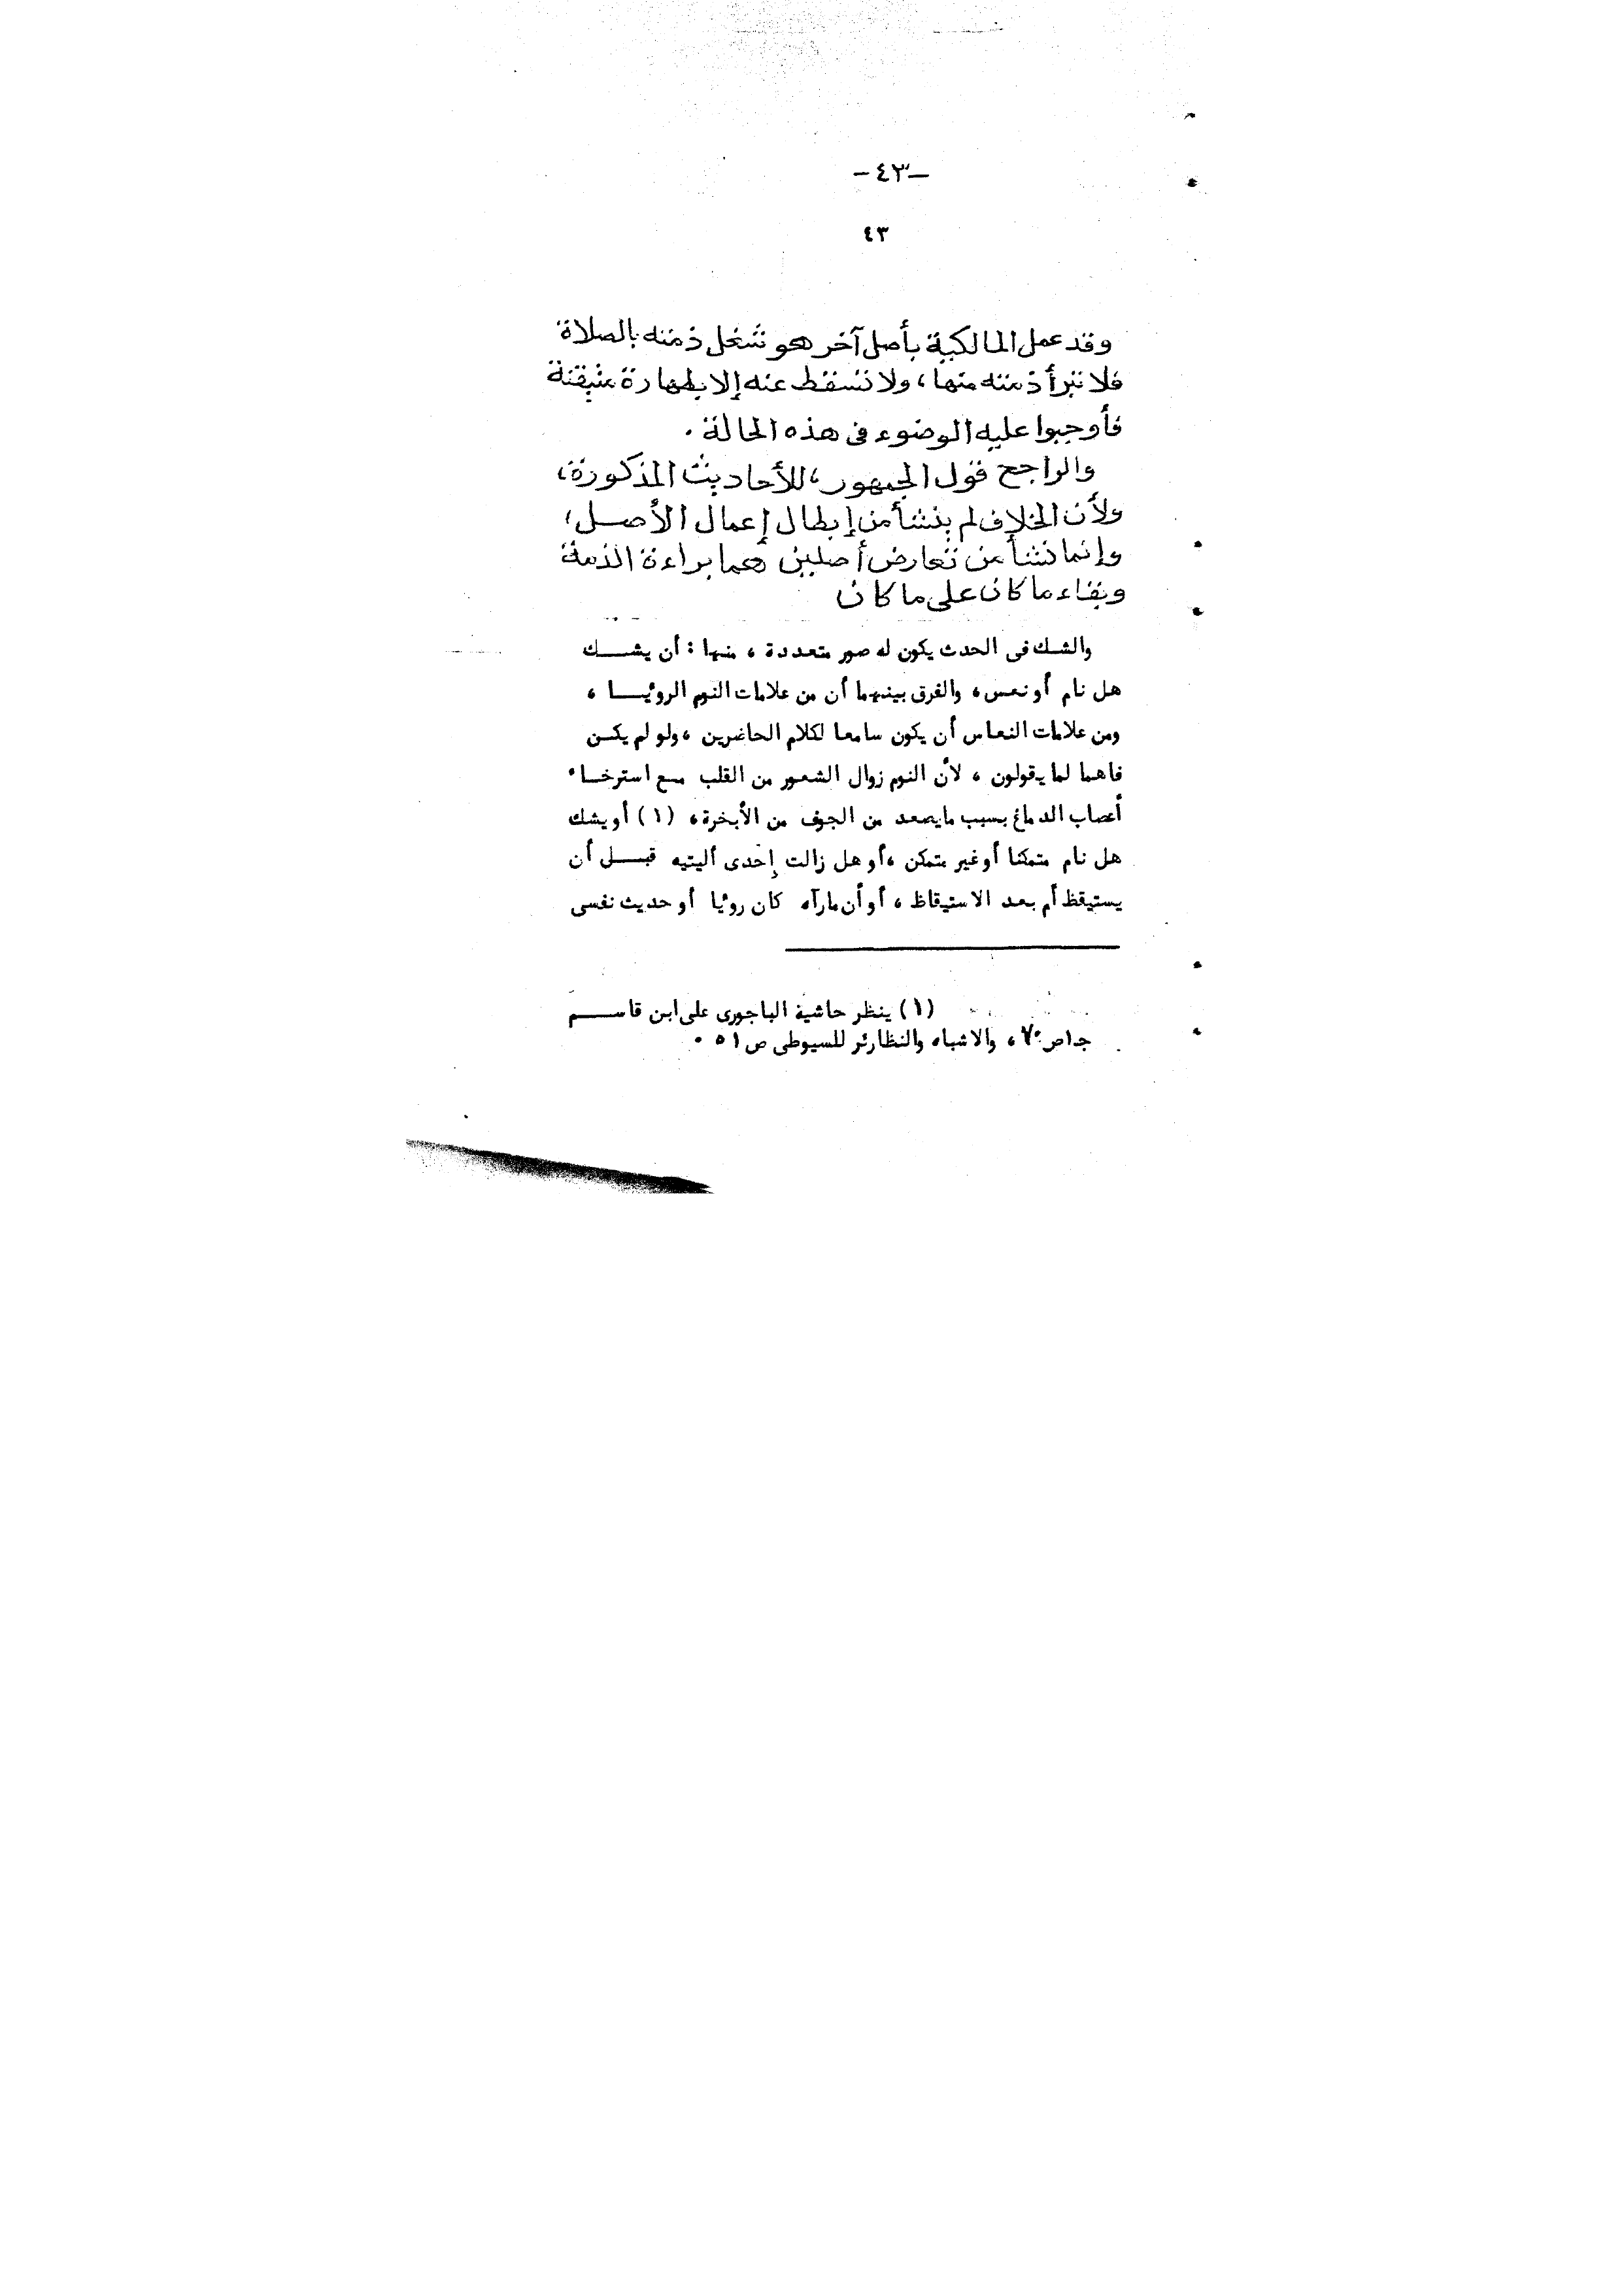 -٤٣-
٤٣
وقد عمل المالكية بأصل آخر هو شَغل ذمته بالصلاة
فلا تبرأ ذمته منها، ولا تسقط عنه إلا بطهارة متيقنة
فأوجبوا عليه الوضوء فى هذه الحالة .
والراجح قول الجمهور، للأحاديث المذكورة،
ولأن الخلاف لم ينشأ من إبطال إعمال الأصــل،
وإنما نشأ من تعارض أصلين هما براءة الذمة
وبقاء ما كان على ما كان
والشــك فى الحدث يكون له صور متعددة ، منها : أن يشــــك
هل نام أو نعس، والفرق بينهما أن من علامات النوم الروئيـــا ،
ومن علامات النعاس أن يكون سامعا لكلام الحاضرين ،ولو لم يكــن
فاهما لما يقولون ، لأن النوم زوال الشعور من القلب مــع استرخــاء
أعصاب الدماغ بسبب مايصعد من الجوف من الأبخرة، (١) أو يشك
هل نام متمكنا أو غير متمكن ،أو هل زالت إحدى أليتيه قبـــل أن
يستيقظ أم بعد الاستيقاظ ، أو أن مارآه كان روئيا أو حديث نفسى
(١) ينظر حاشية الباجورى على ابن قاســـم
جـ١ص٧٠، والاشباه والنظارئر للسيوطى ص٥١ .